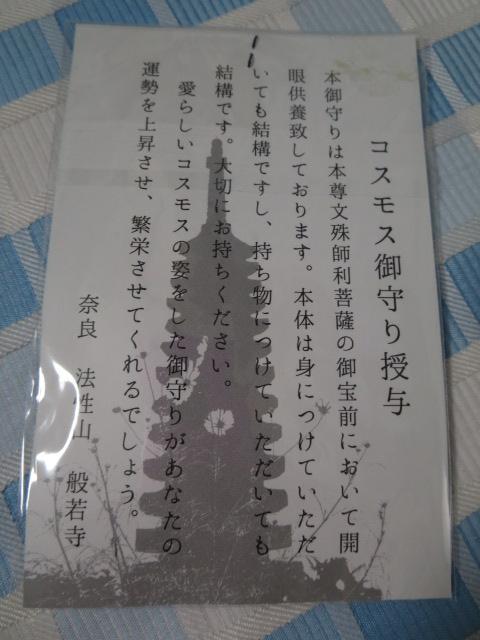 コスモス御守り授与
本御守りは本尊文殊師利菩薩の御宝前において開
眼供養致しております。本体は身につけていただ
いても結構ですし、持ち物につけていただいても
結構です。大切にお持ちください。
愛らしいコスモスの姿をした御守りがあなたの
運勢を上昇させ、繁栄させてくれるでしょう。
奈良 法性山 般若寺